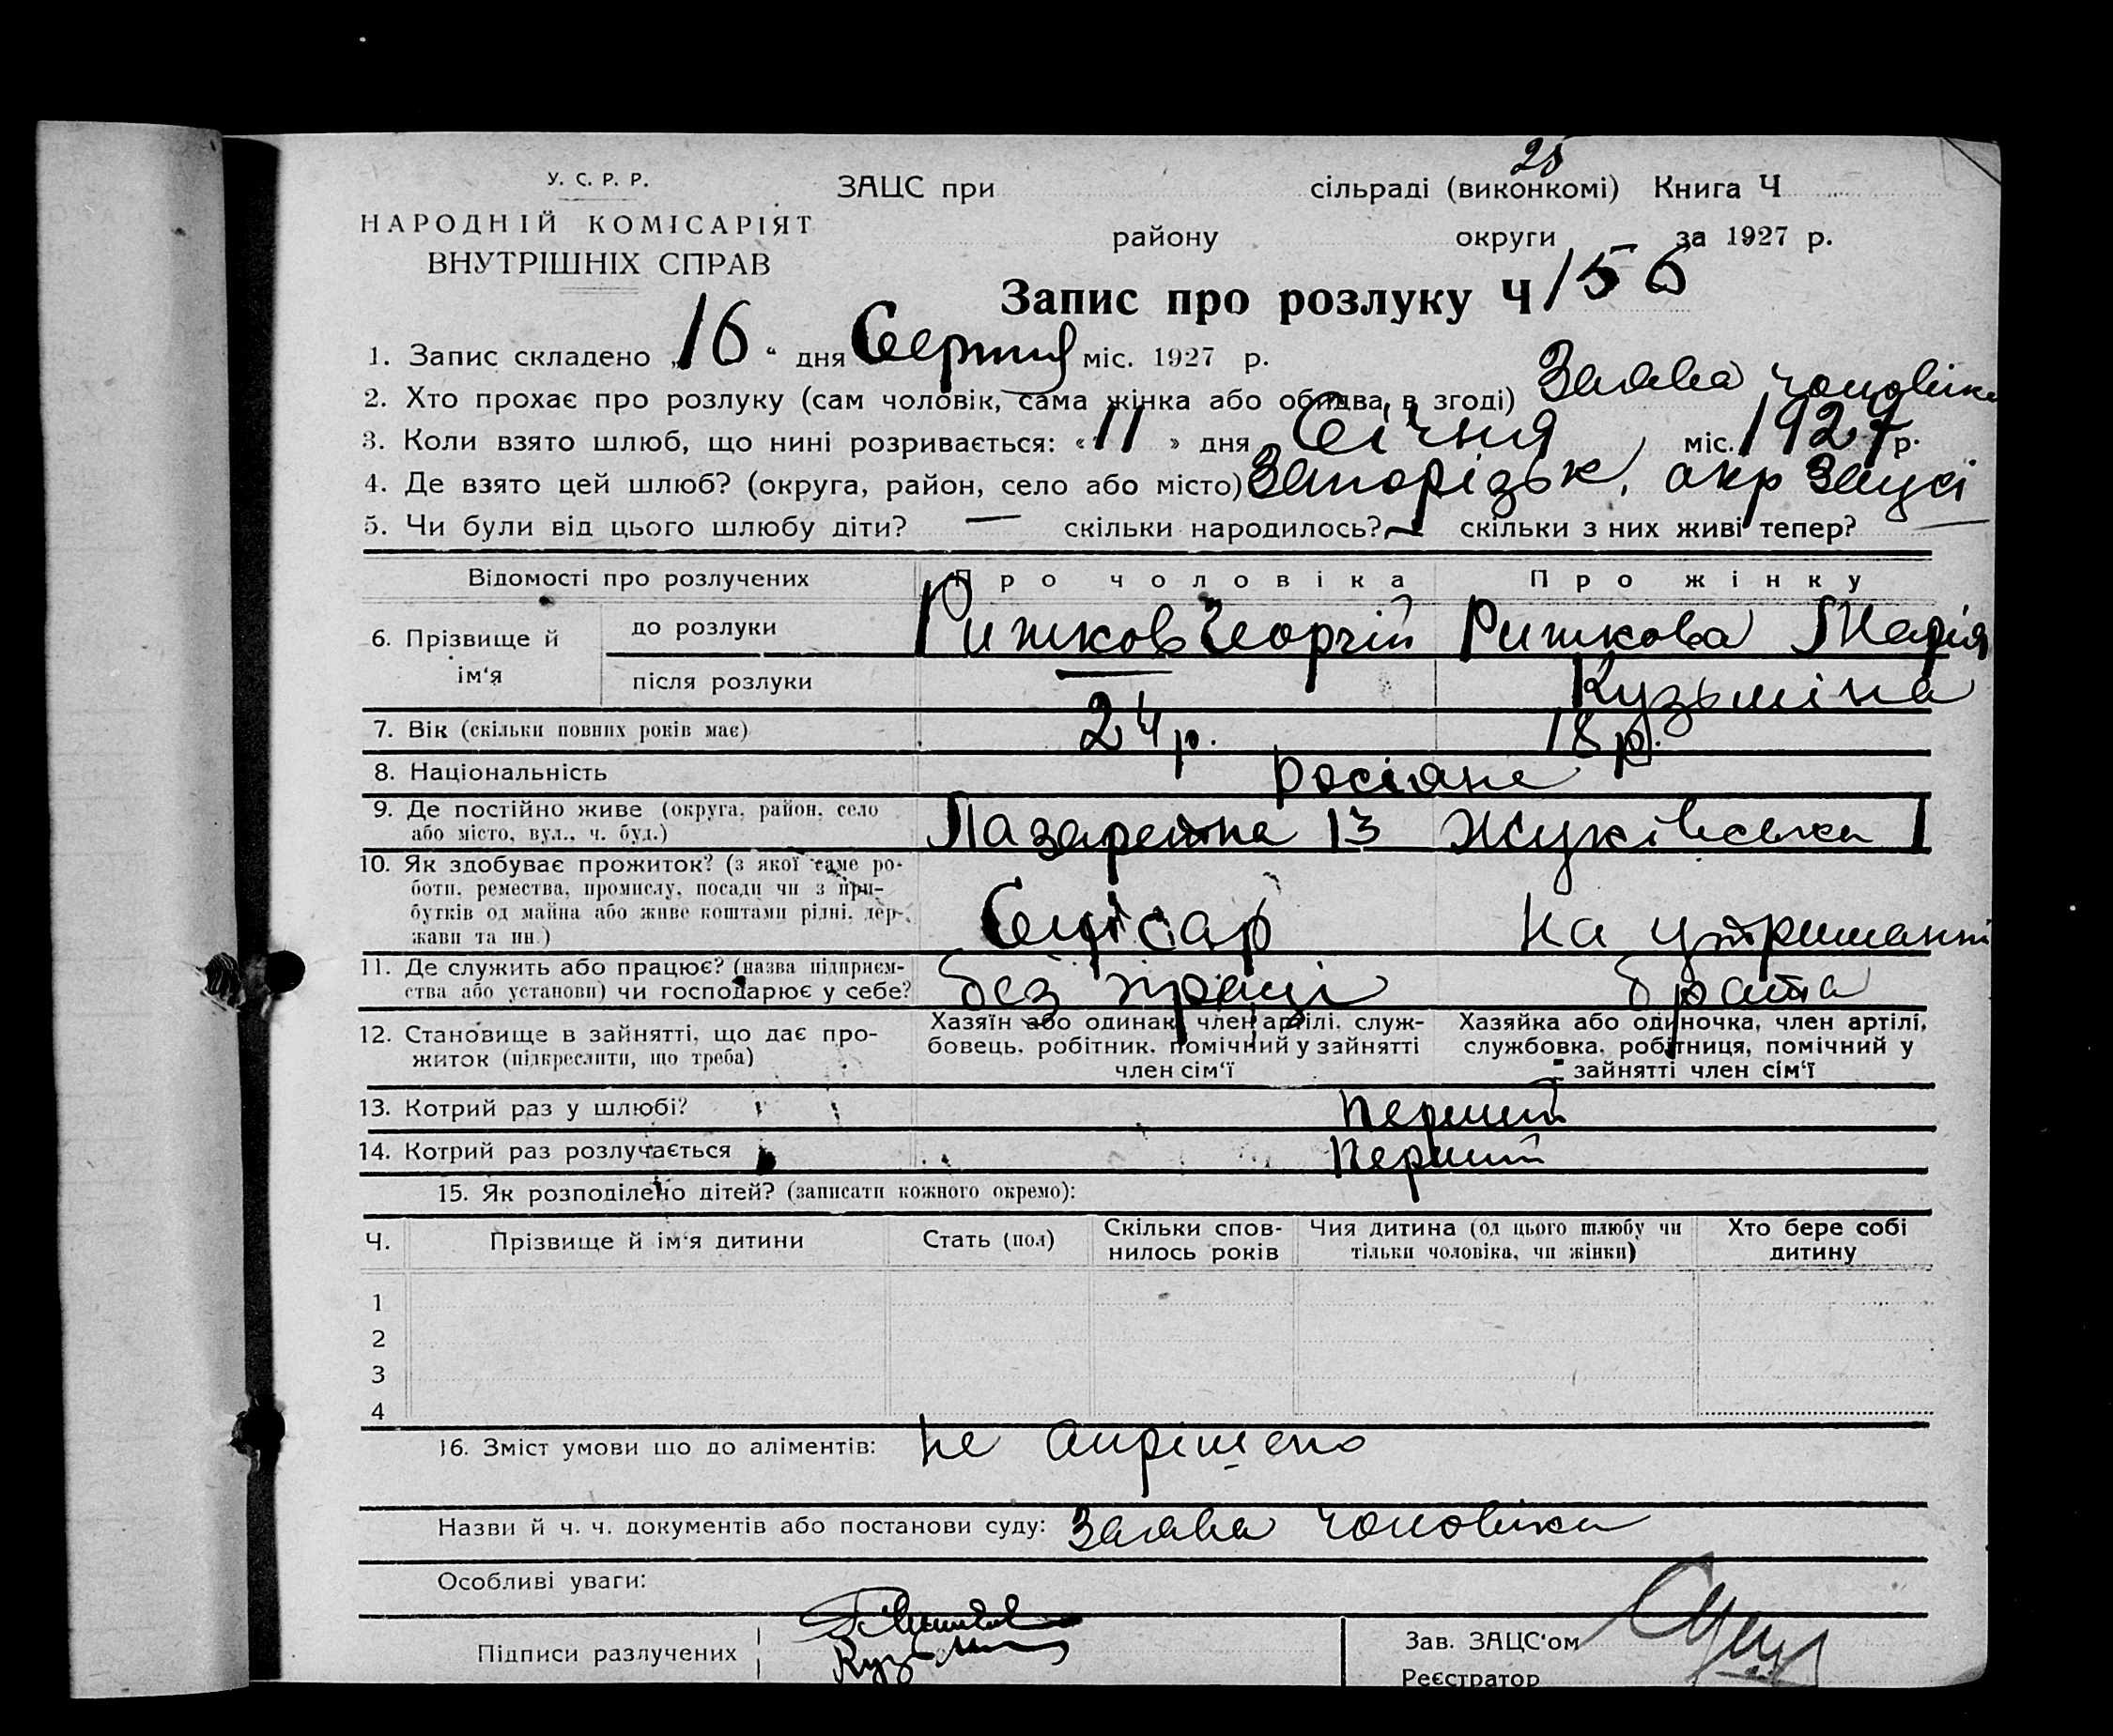 25
У. С. Р. Р.
НАРОДНІЙ КОМІСАРІЯТ
ВНУТРІШНІХ СПРАВ
ЗАЦС при сільраді (виконкомі) Книга Ч
району округи за 1927 р.
Запис про розлуку Ч 156
1. Запис складено „16“ дня Серпня міс. 1927 р.
2. Хто прохає про розлуку (сам чоловік, сама жінка або обидва в згоді) Заява чоловіка
3. Коли взято шлюб, що нині розривається: «11» дня Січня міс. 1927 р.
4. Де взято цей шлюб? (округа, район, село або місто) Запорізьк, окр Зацсі
5. Чи були від цього шлюбу діти? — скільки народилось? — скільки з них живі тепер? —
Відомості про розлучених Про чоловіка Про жінку
6. Прізвище й ім‘я
до розлуки Рижков Георгій Рижкова Марія
після розлуки — Кузьміна
7. Вік (скільки повних років має) 24 р. 18 р.
8. Національність росіяне
9. Де постійно живе (округа, район, село
або місто, вул., ч. буд.) Лазаретна 13 Жуківська 1
10. Як здобуває прожиток? (з якої саме ро-
боти, ремества, промислу, посади чи з при-
бутків од майна або живе коштами рідні, дер-
жави та ин.) Слюсар На утриманні
11. Де служить або працює? (назва підприєм-
ства або установи) чи господарює у себе? без праці брата
12. Становище в зайнятті, що дає про-
житок (підкреслити, що треба)
Хазяїн або одинак, член артілі, служ-
бовець, робітник, помічний у зайнятті
член сім‘ї
Хазяйка або одиночка, член артілі,
службовка, робітниця, помічний у
зайнятті член сім‘ї
13. Котрий раз у шлюбі? перший
14. Котрий раз розлучається перший
15. Як розподілено дітей? (записати кожного окремо):
Ч. Прізвище й ім‘я дитини Стать (пол) Скільки спов-
нилось років Чия дитина (од цього шлюбу чи
тільки чоловіка, чи жінки) Хто бере собі
дитину
1
2
3
4
16. Зміст умови що до аліментів: не вирішено
Назви й ч. ч. документів або постанови суду: Заява чоловіка
Особливі уваги:
Підписи разлучених
Кузьмин
Зав. ЗАЦС‘ом
Реєстратор